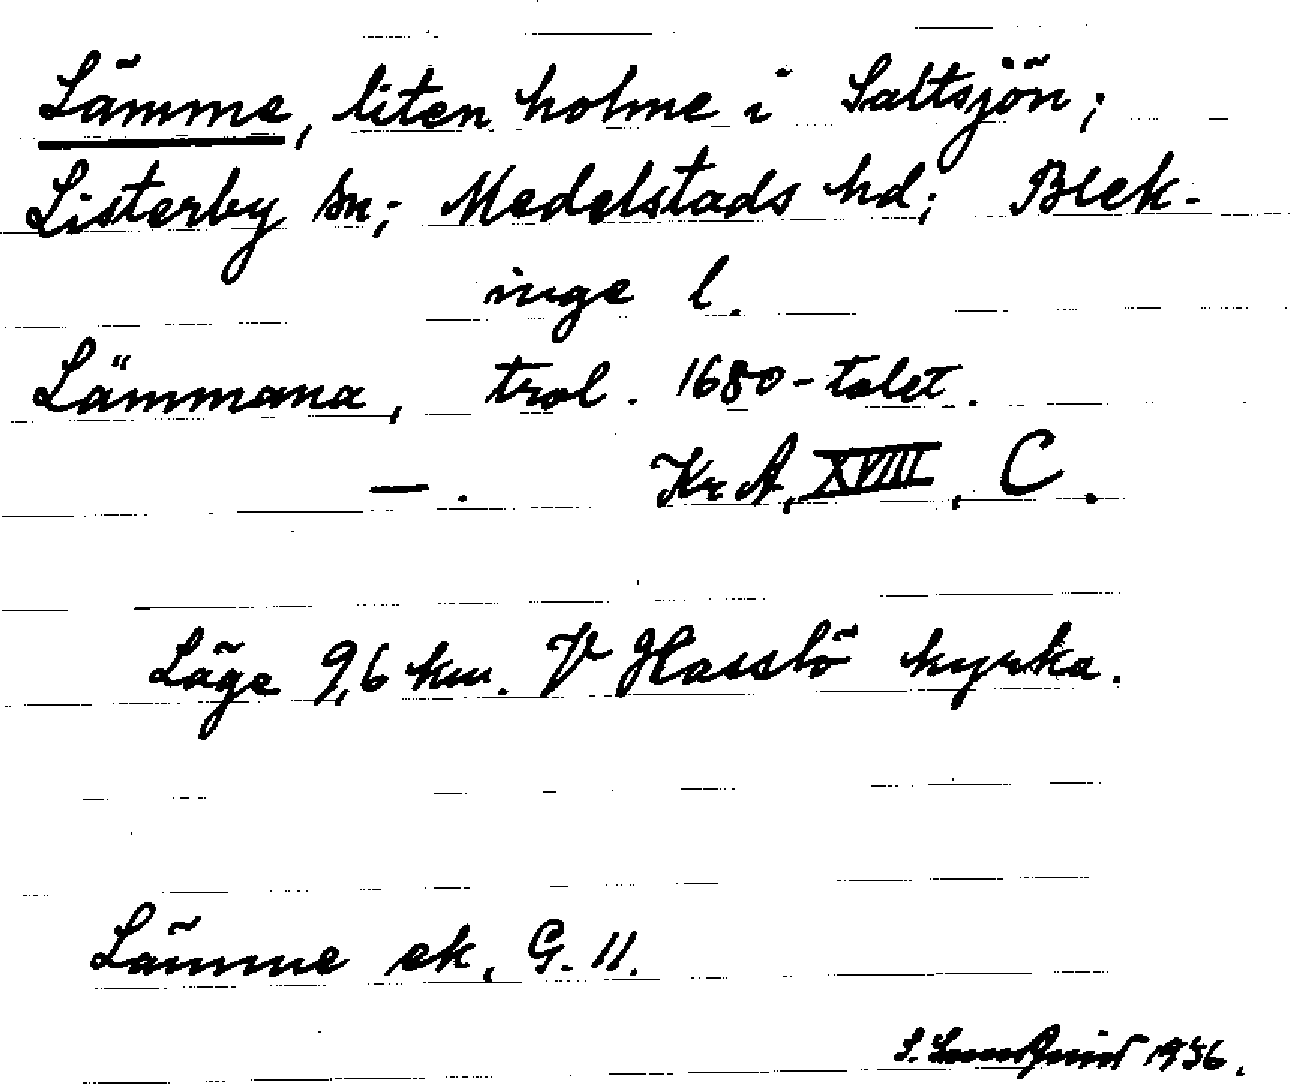 Lämme, liten holme i Saltsjön;
Listerby sn; Medelstads hd; Blek-
inge l.
Lämmana, trol. 1680-talet.
— . Kr A, XVIII, C.
Läge 9,6 km. V Hasslö kyrka.
Lämme ek, G. 11.
1936.